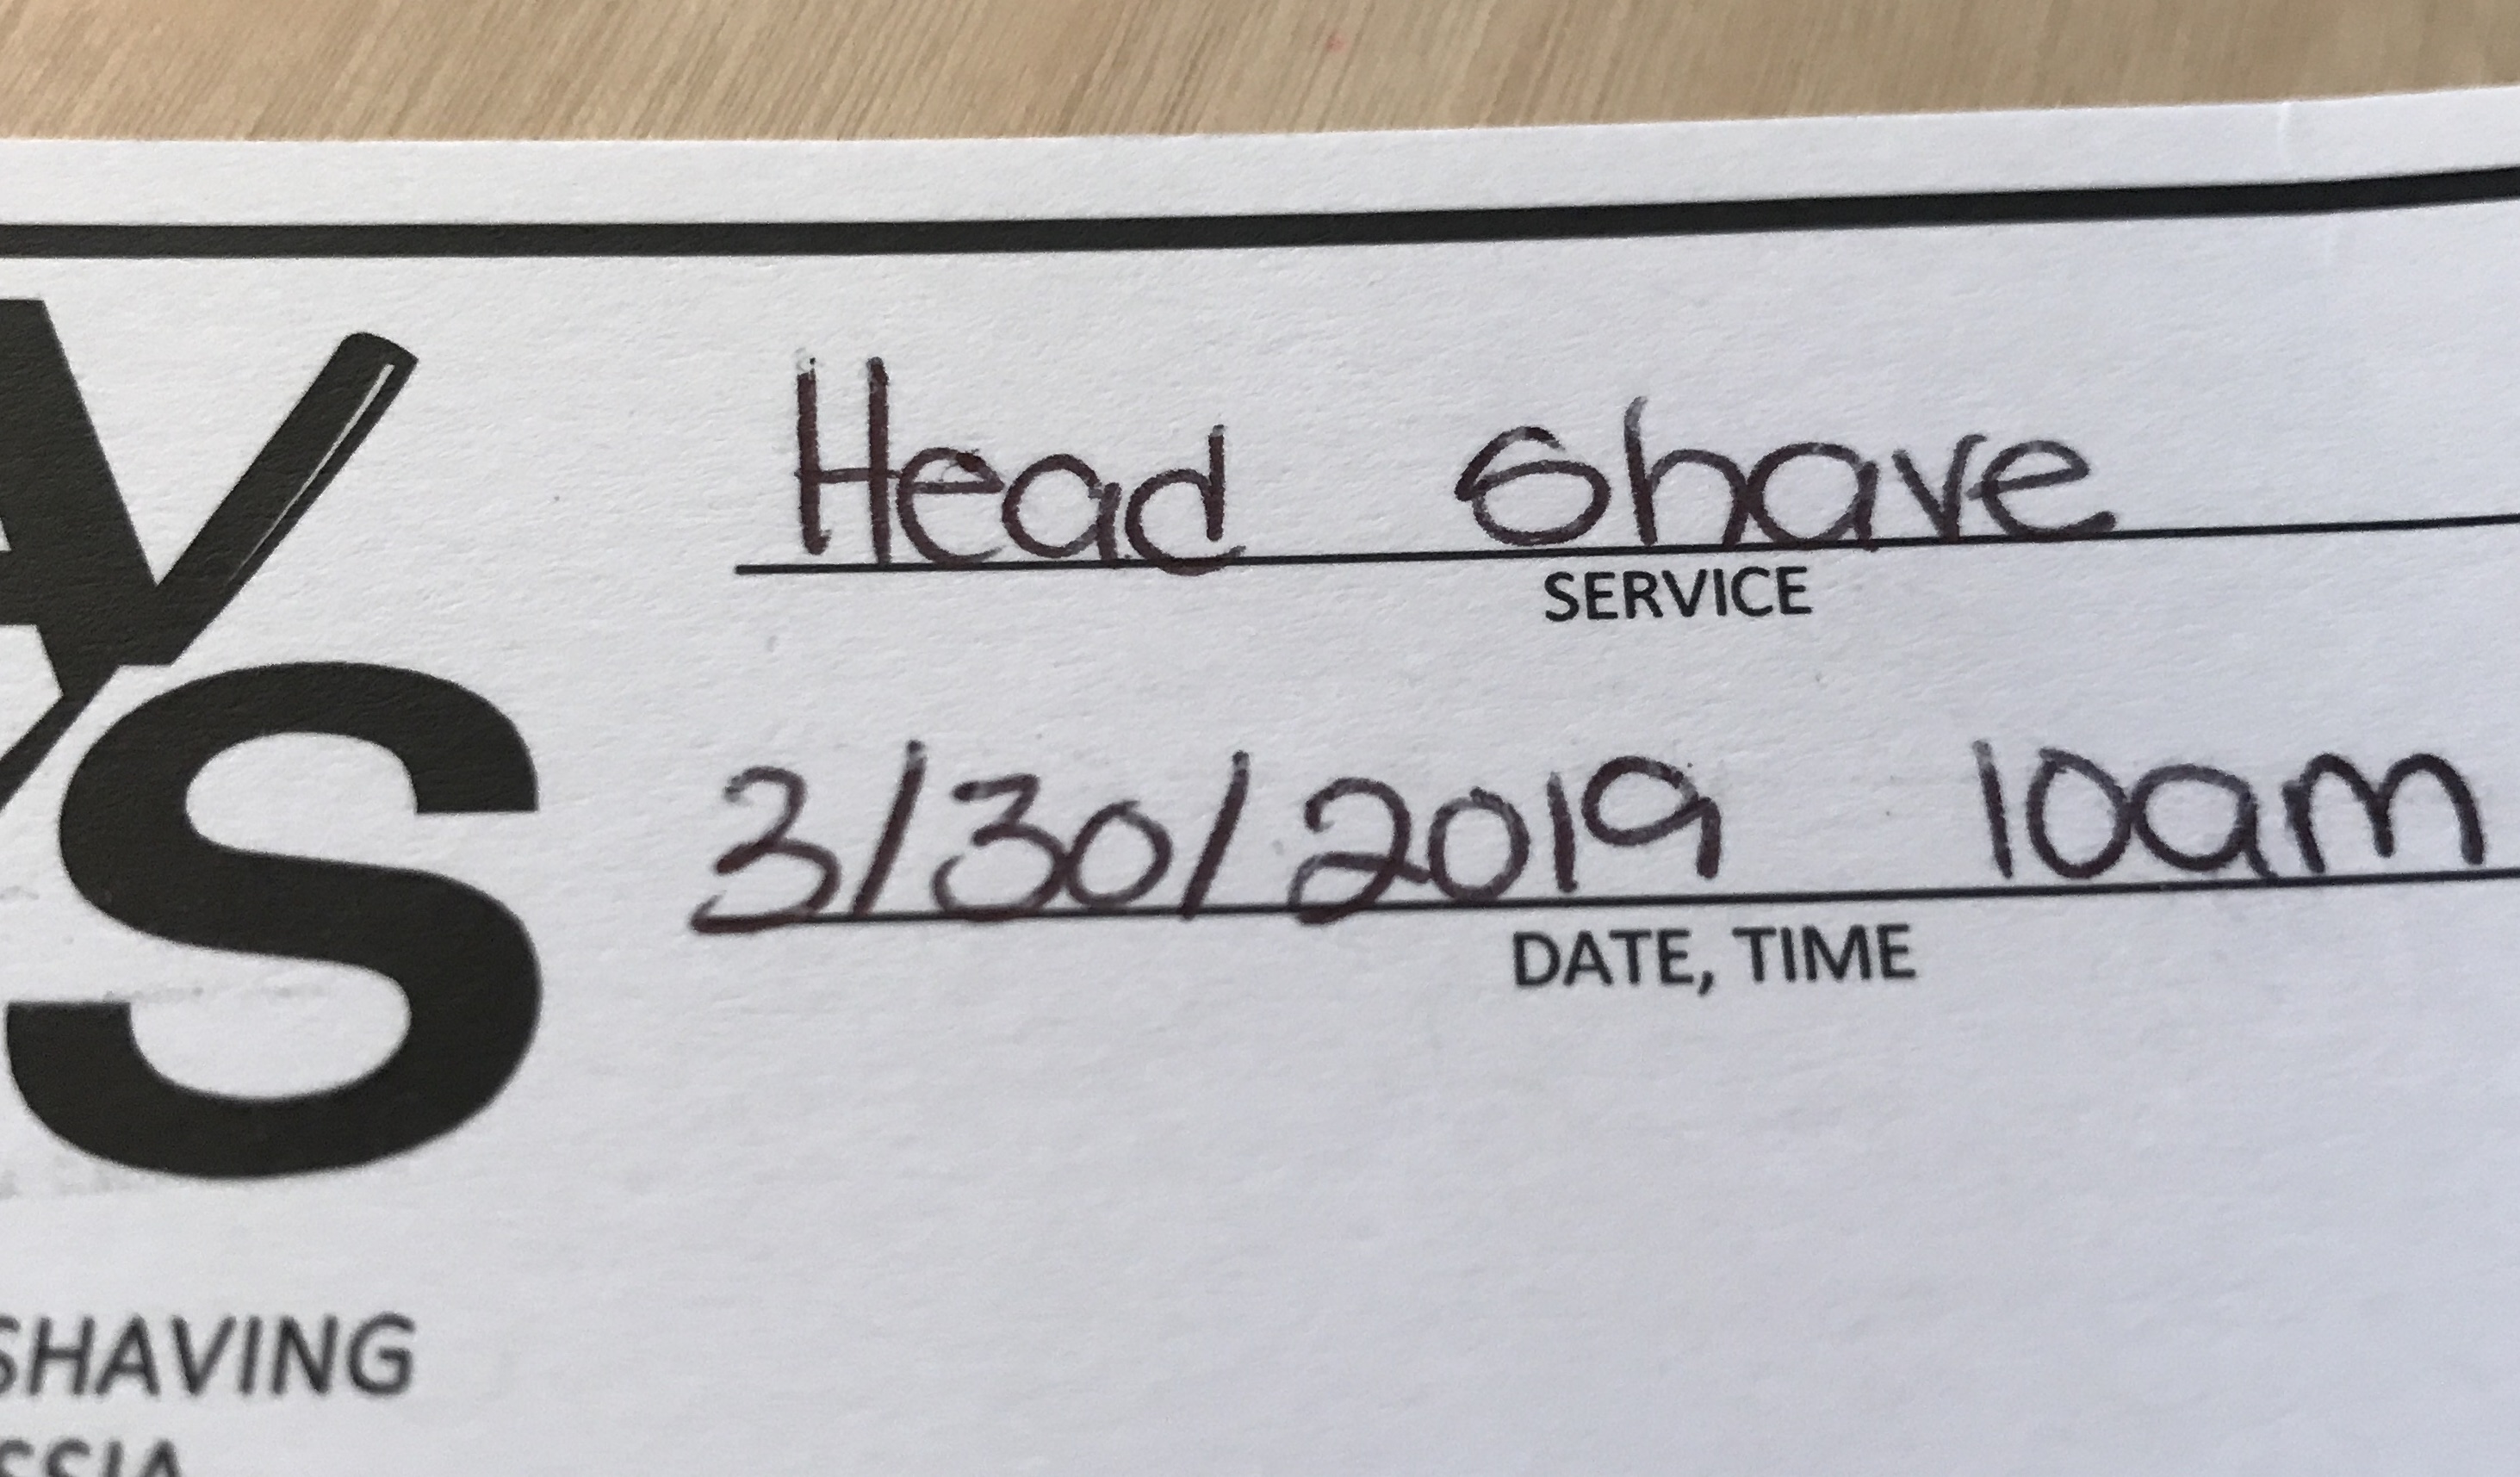 Head Shave
SERVICE
3/30/2019 10am
DATE, TIME
S
SHAVING